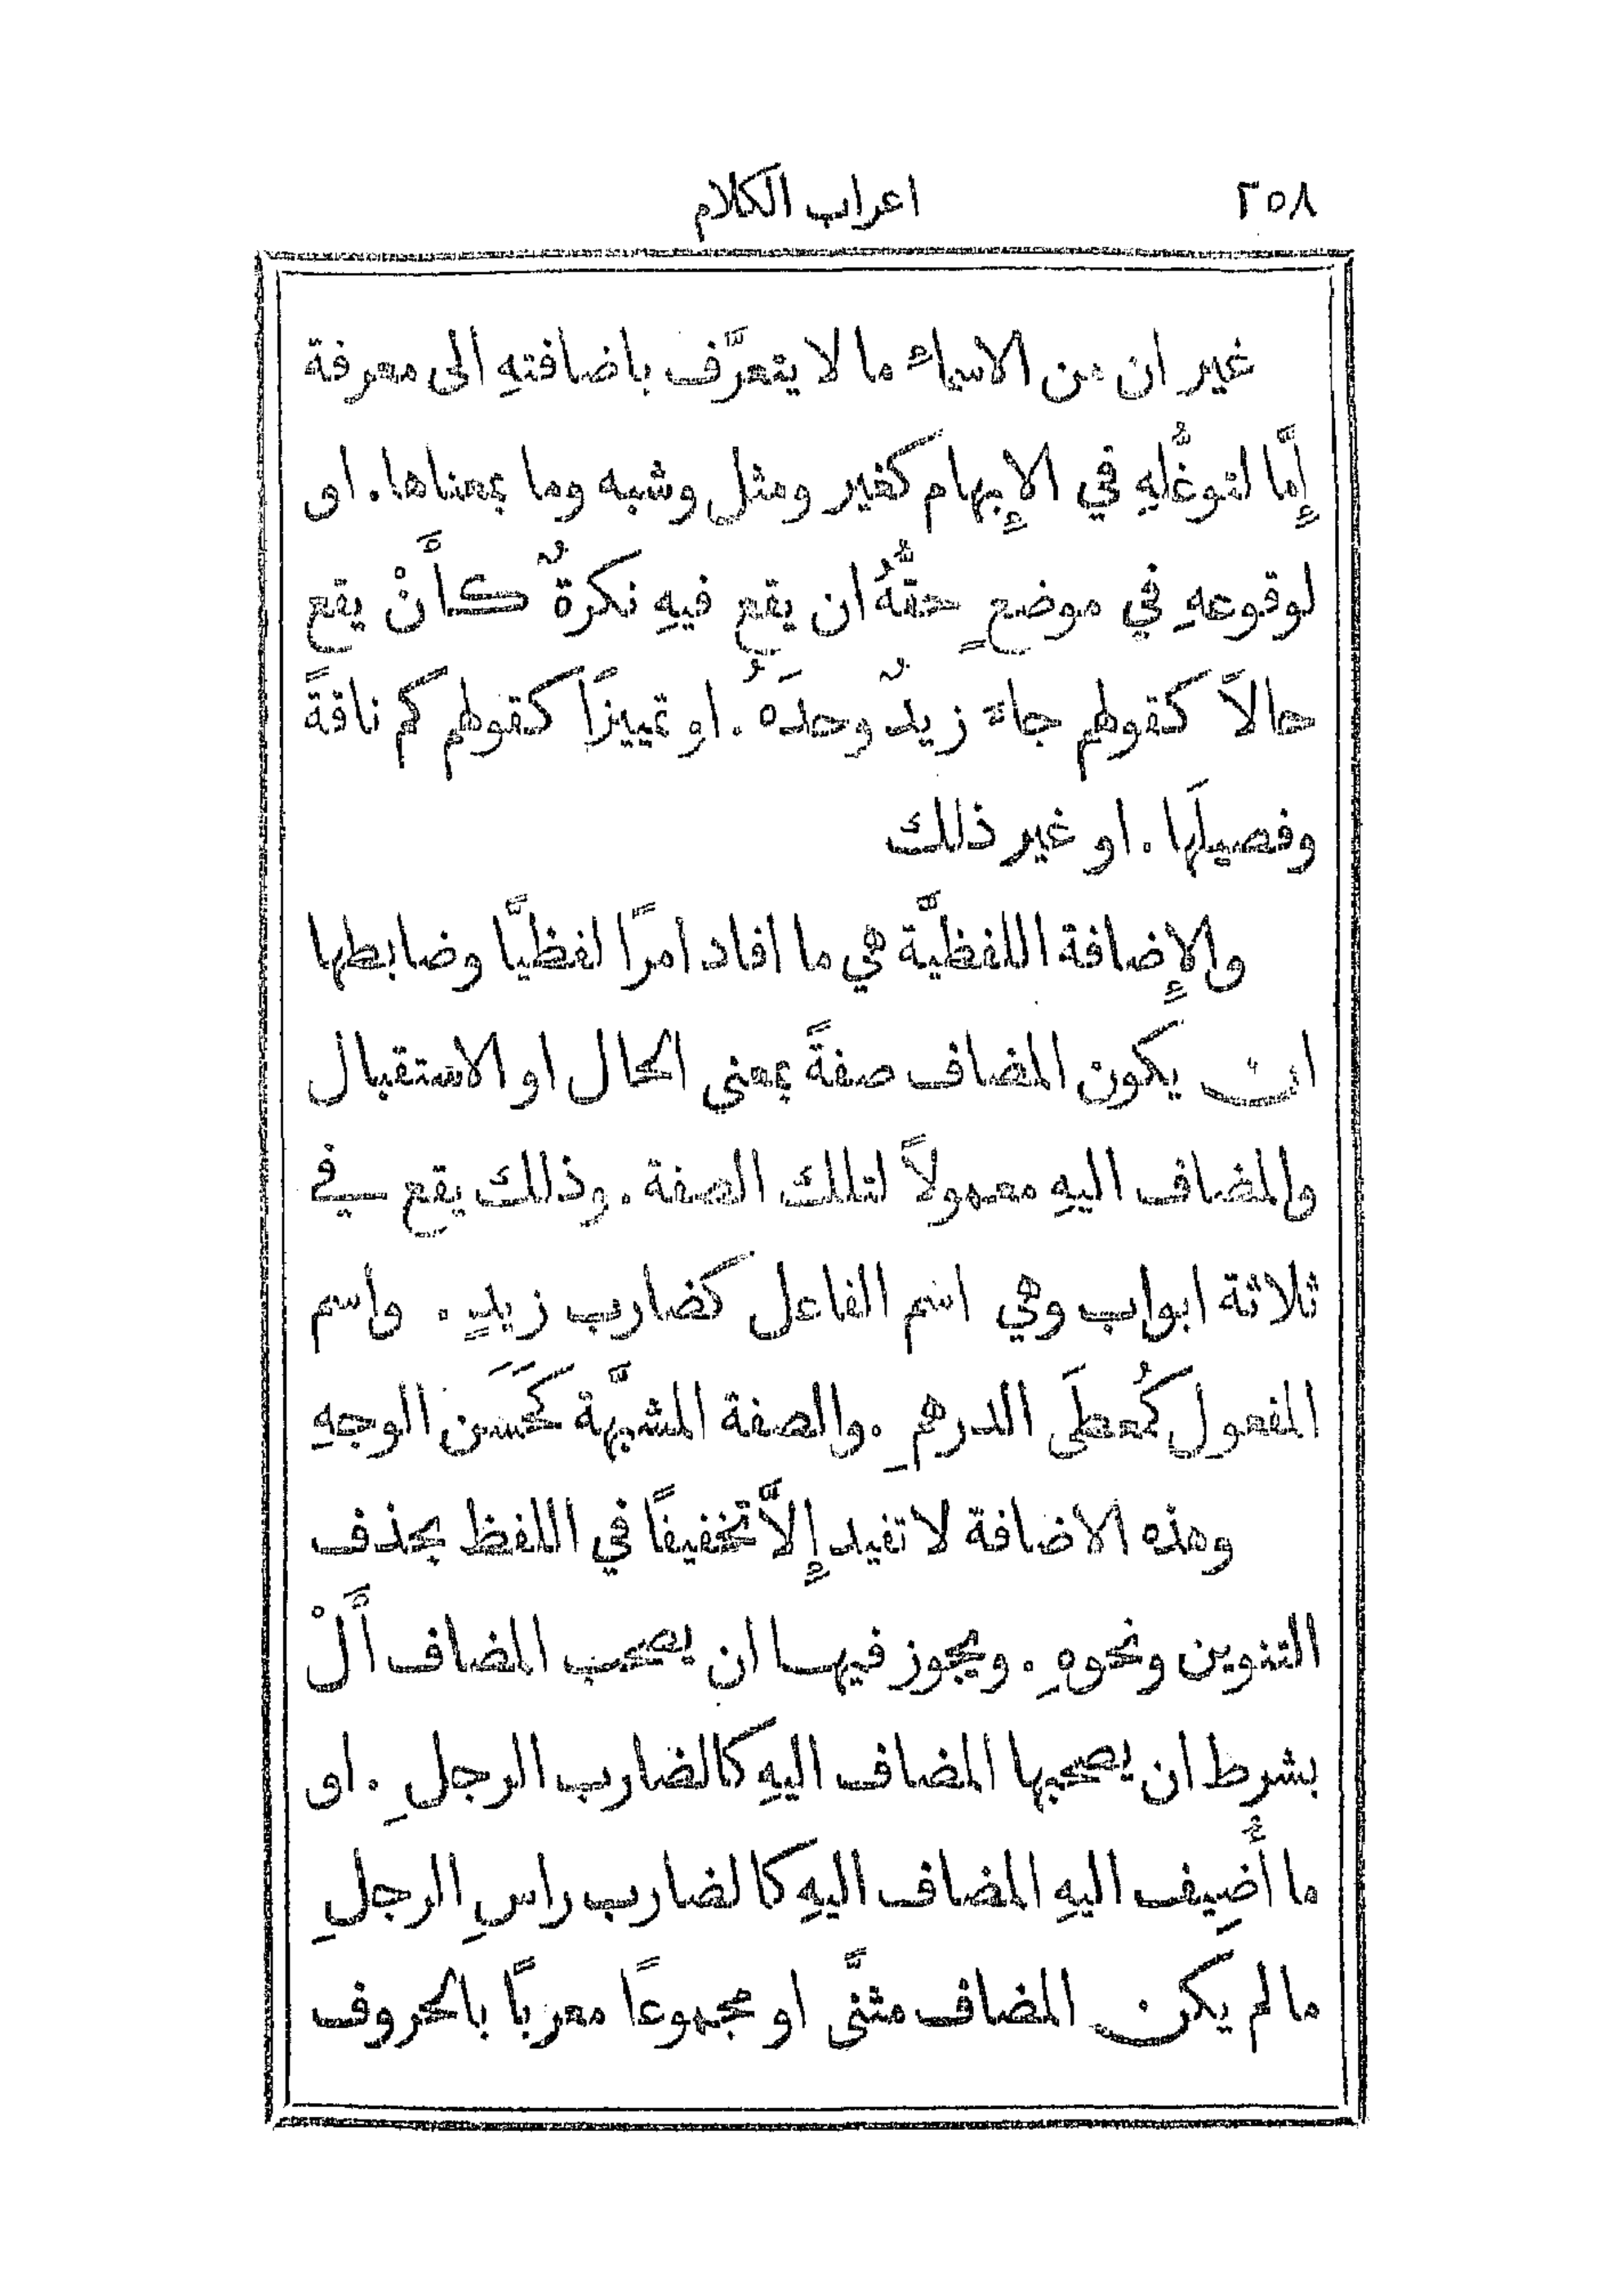 ٢٥٨ اعراب الكلام
غير ان من الاسماء ما لا يتعرَّف باضافتهِ الى معرفة
إِمَّا لتوغُّلهِ في الإِبهام كغير ومثل وشبه وما بمعناها. او
لوقوعهِ في موضعٍ حقُّهُ ان يقع فيهِ نكرةٌ كأَنْ يقع
حالاً كقولهم جاءَ زيدٌ وحدَهُ. او تمييزًا كقولهم كم ناقةً
وفصيلَها. او غير ذلك
والإِضافة اللفظيَّة هي ما افاد امرًا لفظيًّا وضابطها
ان يكون المضاف صفةً بمعنى الحال او الاستقبال
والمضاف اليهِ معمولاً لتلك الصفة. وذلك يقع في
ثلاثة ابواب وهي اسم الفاعل كضارب زيدٍ. واسم
المفعول كمُعطَى الدرهمِ. والصفة المشبَّهة كحَسَن الوجهِ
وهذه الاضافة لا تفيد إِلاَّ تخفيفًا في اللفظ بحذف
التنوين ونحوهِ. ويجوز فيها ان يصحب المضاف أَلْ
بشرط ان يصحبها المضاف اليهِ كالضارب الرجلِ. او
ما أُضِيف اليهِ المضاف اليهِ كالضارب راسِ الرجلِ
ما لم يكن المضاف مثنَّى او مجموعًا معربًا بالحروف